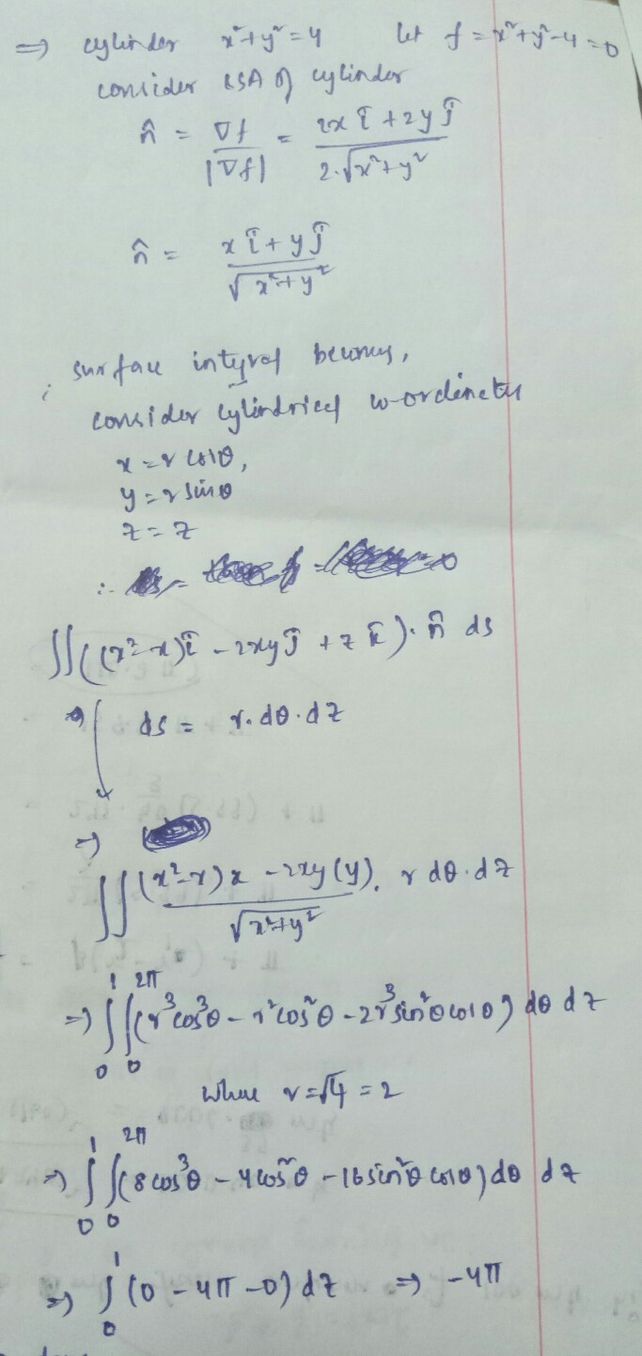 ⇒ cylinder x²+y²=4 let f = x²+y²-4=0
consider CSA of cylinder
n̂ = ∇f / |∇f| = (2x î + 2y ĵ) / (2·√(x²+y²))
n̂ = (x î + y ĵ) / √(x²+y²)
surface integral becomes,
consider cylindrical co-ordinates
x = r cosθ,
y = r sinθ
z = z
∬((x²-x)î - 2xy ĵ + z k̂)· n̂ ds
ds = r·dθ·dz
⇒
∬ ((x²-x)x - 2xy(y)) / √(x²+y²) · r dθ·dz
⇒ ∫₀¹ ∫₀^2π (r³cos³θ - r²cos²θ - 2r³sin²θ cosθ) dθ dz
where r = √4 = 2
⇒ ∫₀¹ ∫₀^2π (8cos³θ - 4cos²θ - 16sin²θ cosθ) dθ dz
⇒ ∫₀¹ (0 - 4π - 0) dz ⇒ -4π